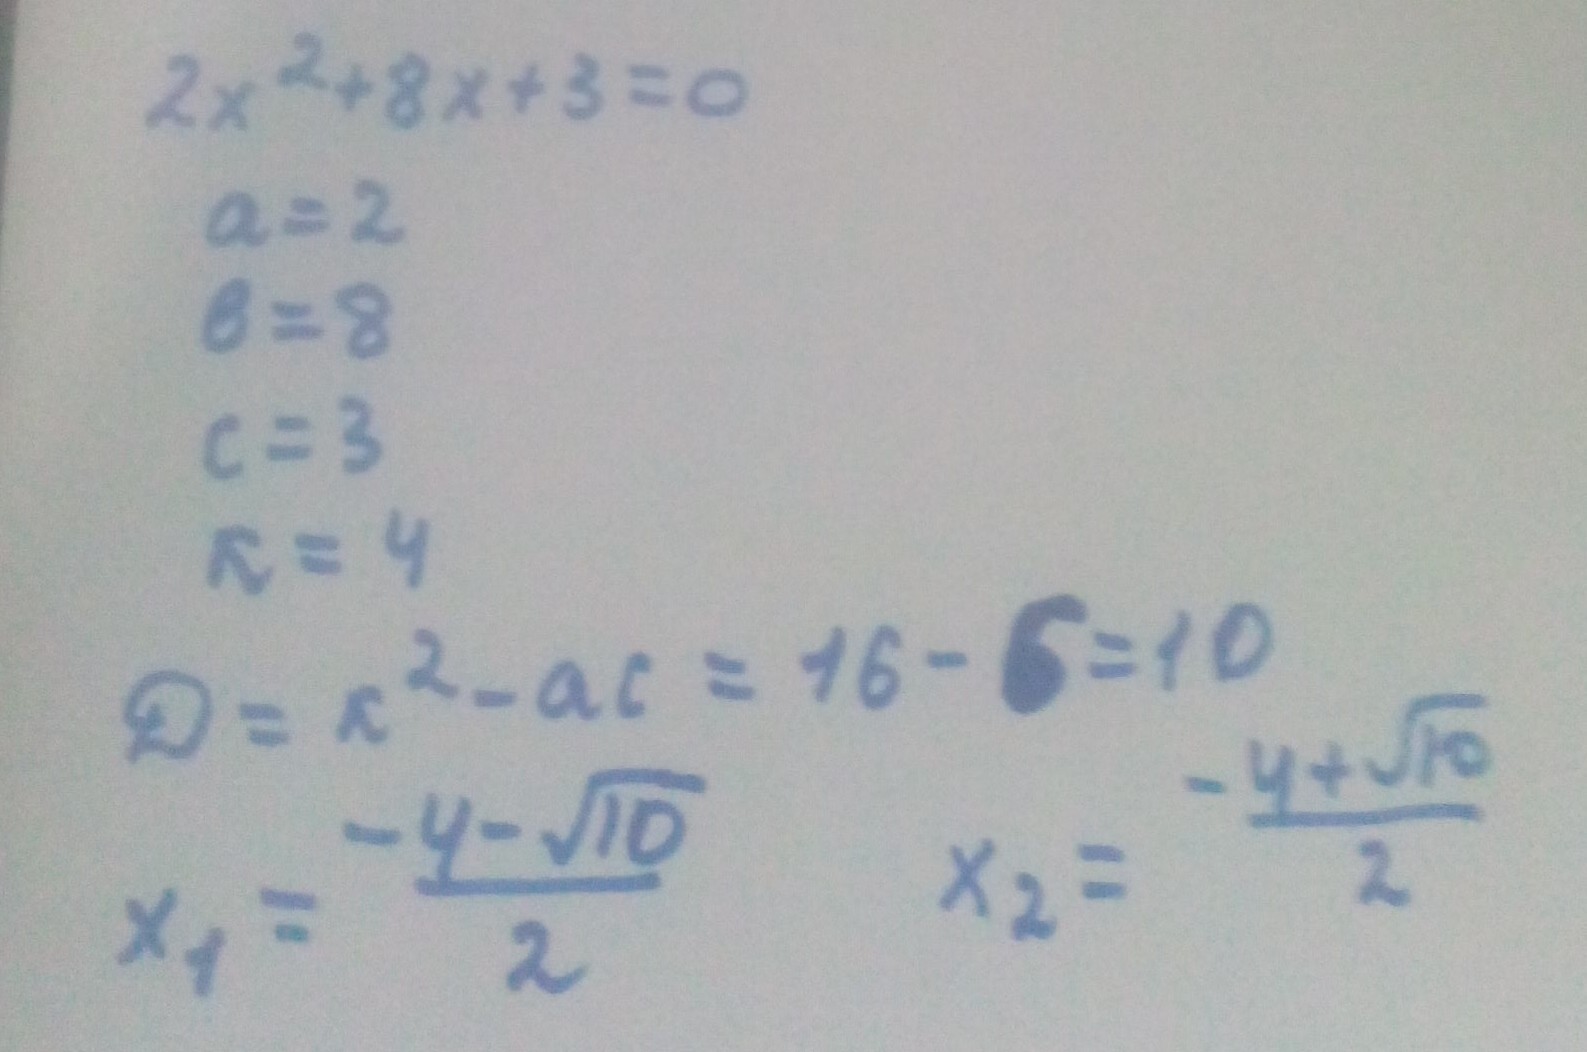 2x²+8x+3=0
a=2
в=8
c=3
к=4
D=к²-ac=16-6=10
x₁=(-4-√10)/2 x₂=(-4+√10)/2